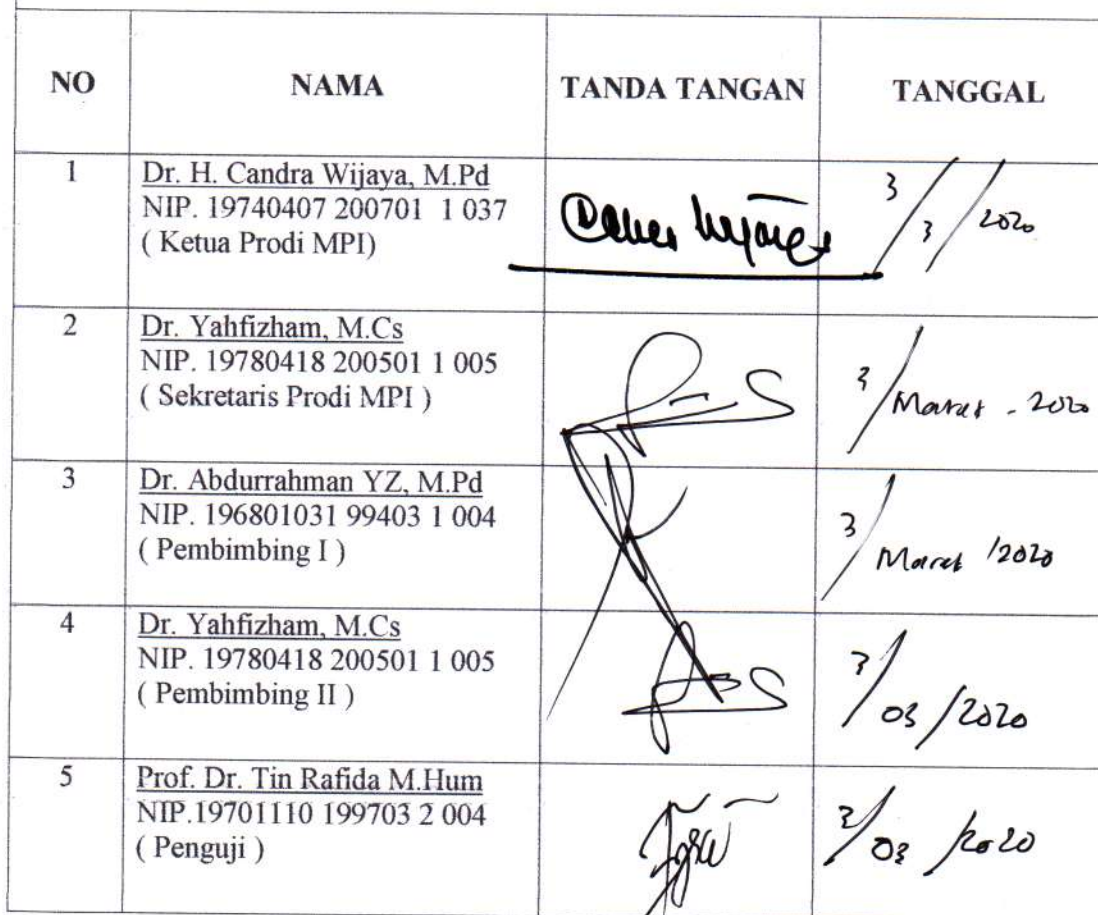 NO NAMA TANDA TANGAN TANGGAL
1 Dr. H. Candra Wijaya, M.Pd
NIP. 19740407 200701 1 037
( Ketua Prodi MPI)
3/3/2020
2 Dr. Yahfizham, M.Cs
NIP. 19780418 200501 1 005
( Sekretaris Prodi MPI )
3/Maret - 2020
3 Dr. Abdurrahman YZ, M.Pd
NIP. 196801031 99403 1 004
( Pembimbing I )
3/Maret /2020
4 Dr. Yahfizham, M.Cs
NIP. 19780418 200501 1 005
( Pembimbing II )
3/03/2020
5 Prof. Dr. Tin Rafida M.Hum
NIP.19701110 199703 2 004
( Penguji )
3/03/2020